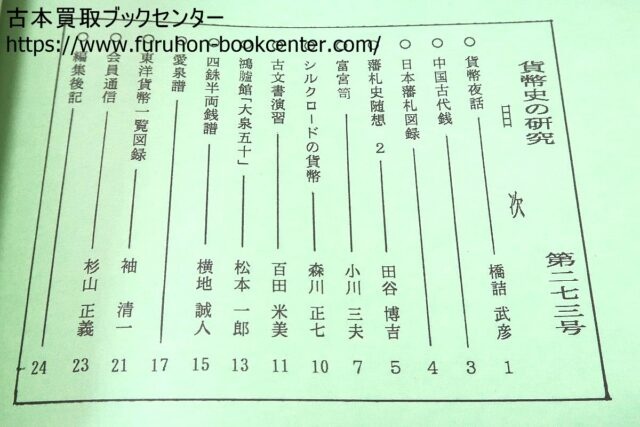 古本買取ブックセンター
https://www.furuhon-bookcenter.com/
貨幣史の研究 第二七三号
目 次
○ 貨幣夜話 橋詰 武彦 1
○ 中国古代銭 3
○ 日本藩札図録 4
○ 藩札史随想 2 田谷 博吉 5
○ 富宮笥 小川 三夫 7
○ シルクロードの貨幣 森川 正七 10
○ 古文書演習 百田 米美 11
○ 鴻臚館「大泉五十」 松本 一郎 13
○ 四銖半両銭譜 横地 誠人 15
○ 愛泉譜 17
○ 東洋貨幣一覧図録 袖 清一 21
○ 会員通信 杉山 正義 23
○ 編集後記 24